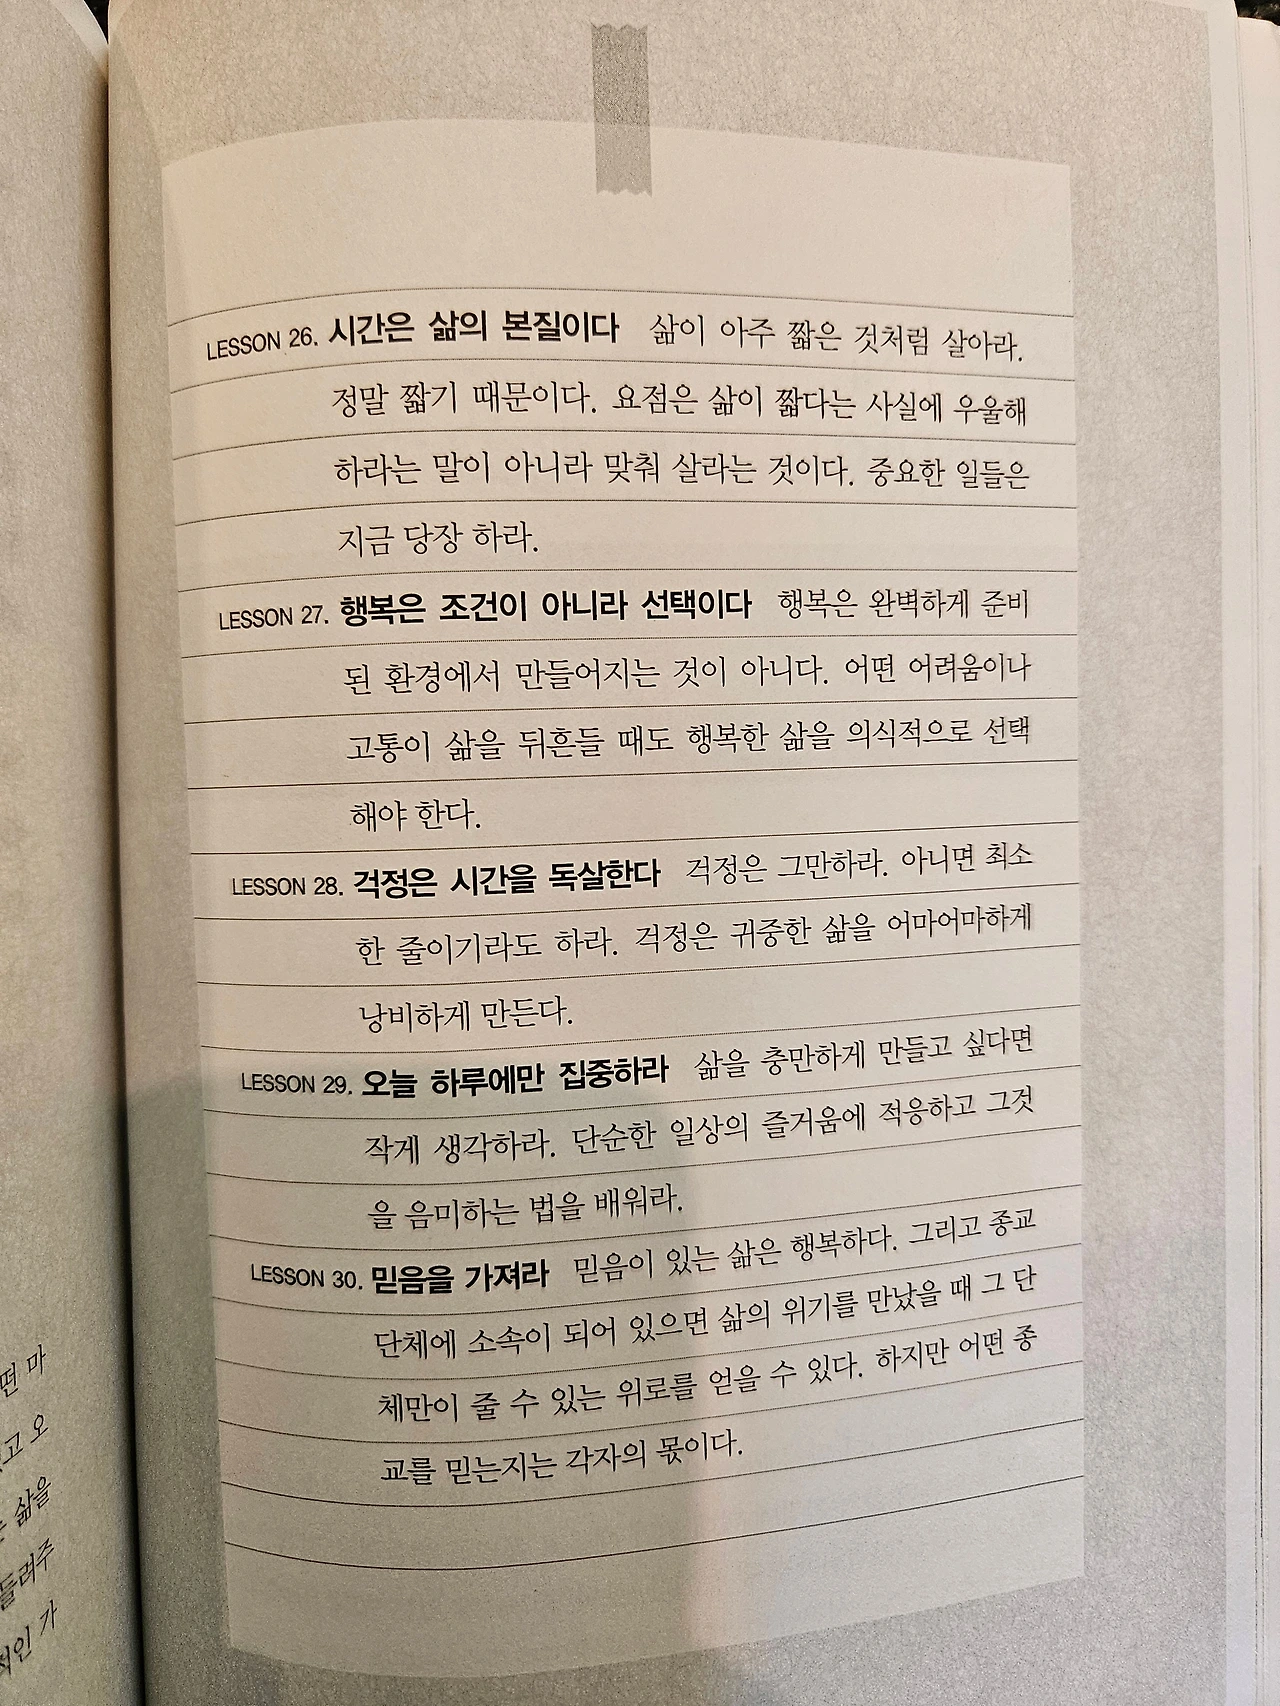 LESSON 26. 시간은 삶의 본질이다 삶이 아주 짧은 것처럼 살아라.
정말 짧기 때문이다. 요점은 삶이 짧다는 사실에 우울해
하라는 말이 아니라 맞춰 살라는 것이다. 중요한 일들은
지금 당장 하라.
LESSON 27. 행복은 조건이 아니라 선택이다 행복은 완벽하게 준비
된 환경에서 만들어지는 것이 아니다. 어떤 어려움이나
고통이 삶을 뒤흔들 때도 행복한 삶을 의식적으로 선택
해야 한다.
LESSON 28. 걱정은 시간을 독살한다 걱정은 그만하라. 아니면 최소
한 줄이기라도 하라. 걱정은 귀중한 삶을 어마어마하게
낭비하게 만든다.
LESSON 29. 오늘 하루에만 집중하라 삶을 충만하게 만들고 싶다면
작게 생각하라. 단순한 일상의 즐거움에 적응하고 그것
을 음미하는 법을 배워라.
LESSON 30. 믿음을 가져라 믿음이 있는 삶은 행복하다. 그리고 종교
단체에 소속이 되어 있으면 삶의 위기를 만났을 때 그 단
체만이 줄 수 있는 위로를 얻을 수 있다. 하지만 어떤 종
교를 믿는지는 각자의 몫이다.
떤 마
고 오
삶을
들려주
적인 가